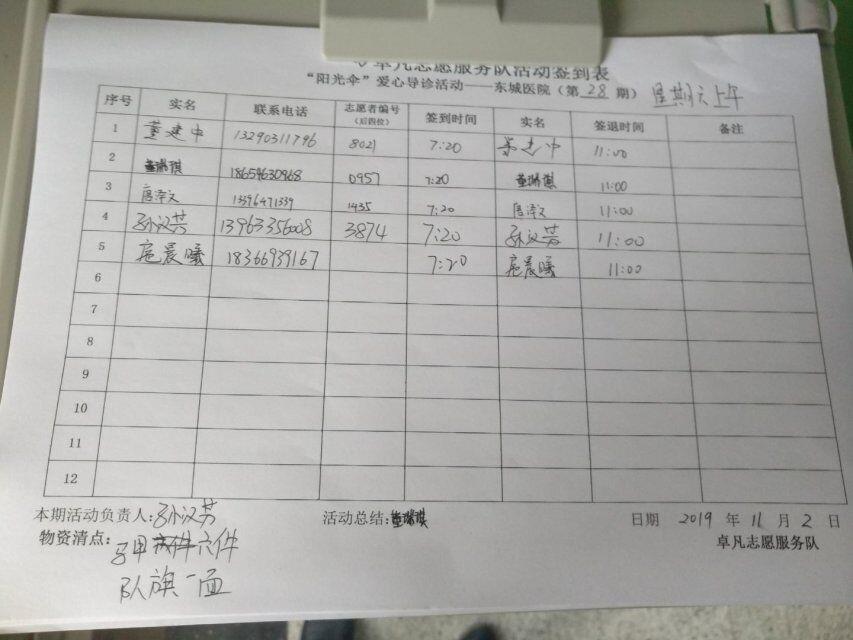 卓凡志愿服务队活动签到表
“阳光伞”爱心导诊活动——东城医院（第 28 期） 星期六上午
序号 实名 联系电话 志愿者编号（后四位） 签到时间 实名 签退时间 备注
1 董建中 13290311796 8021 7:20 董建中 11:00
2 董琳琪 18659630968 0957 7:20 董琳琪 11:00
3 唐泽文 13396471339 1435 7:20 唐泽文 11:00
4 孙汉芳 13963356008 3874 7:20 孙汉芳 11:00
5 扈晨曦 18366939167 7:20 扈晨曦 11:00
6
7
8
9
10
11
12
本期活动负责人:孙汉芳 活动总结:董琳琪 日期 2019 年 11 月 2 日
物资清点: 马甲 六件 卓凡志愿服务队
队旗一面